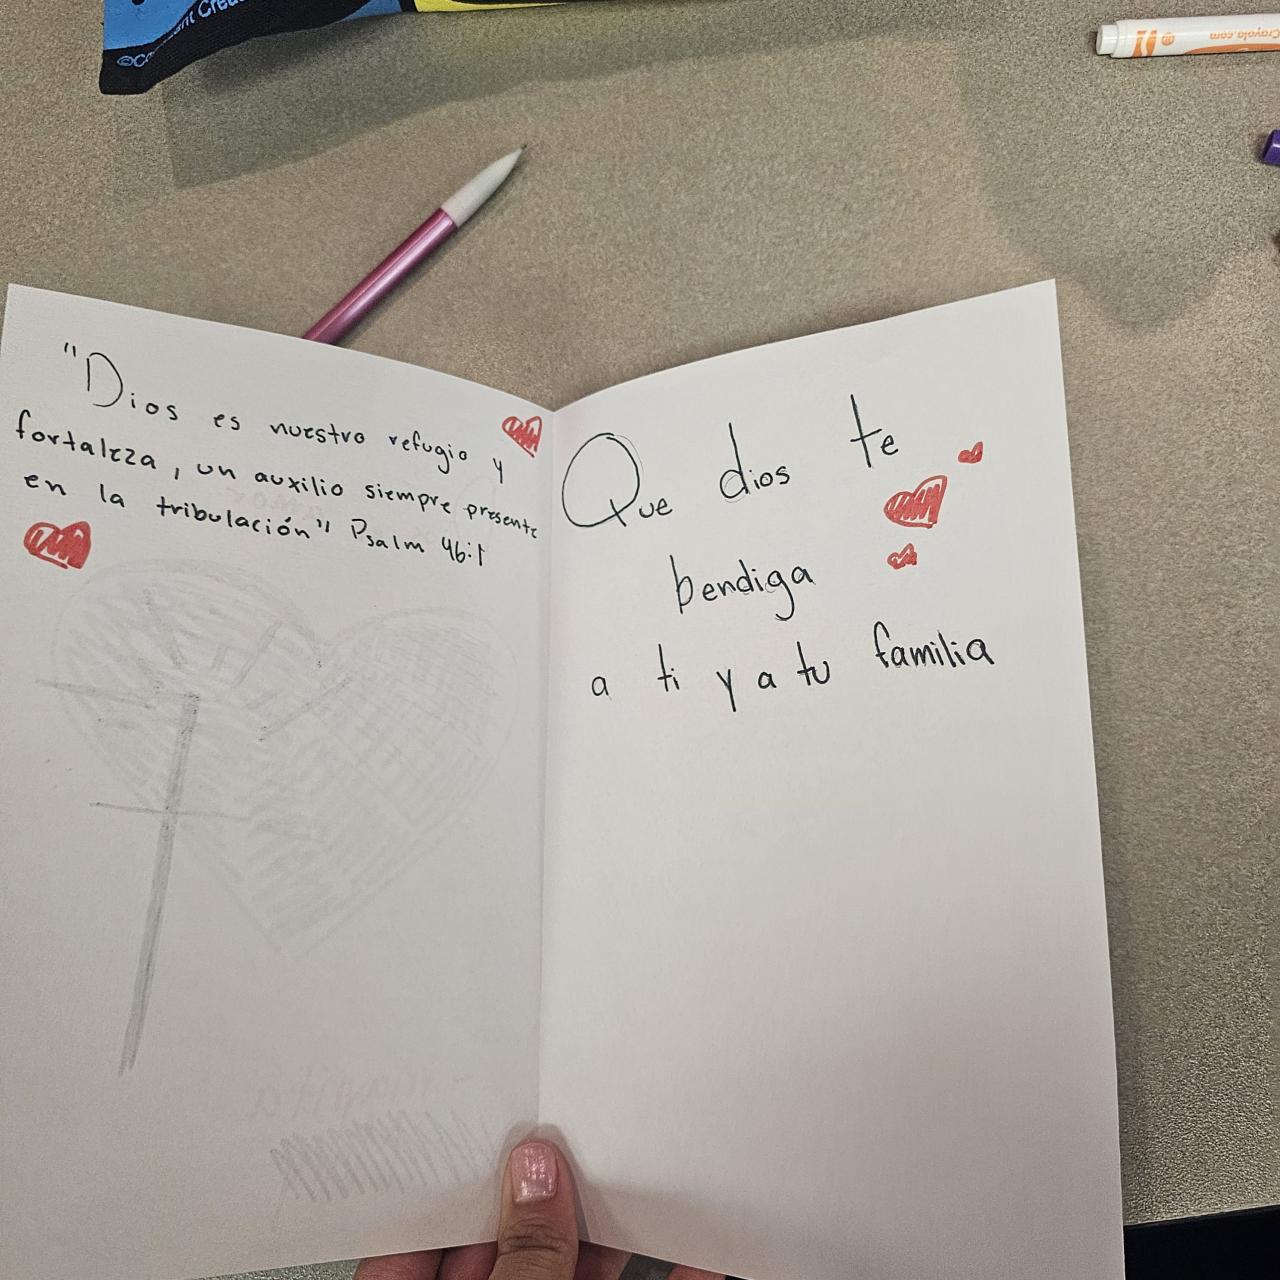 "Dios es nuestro refugio y
fortaleza, un auxilio siempre presente
en la tribulación" Psalm 46:1
Que dios te
bendiga
a ti y a tu familia
Crayola.com